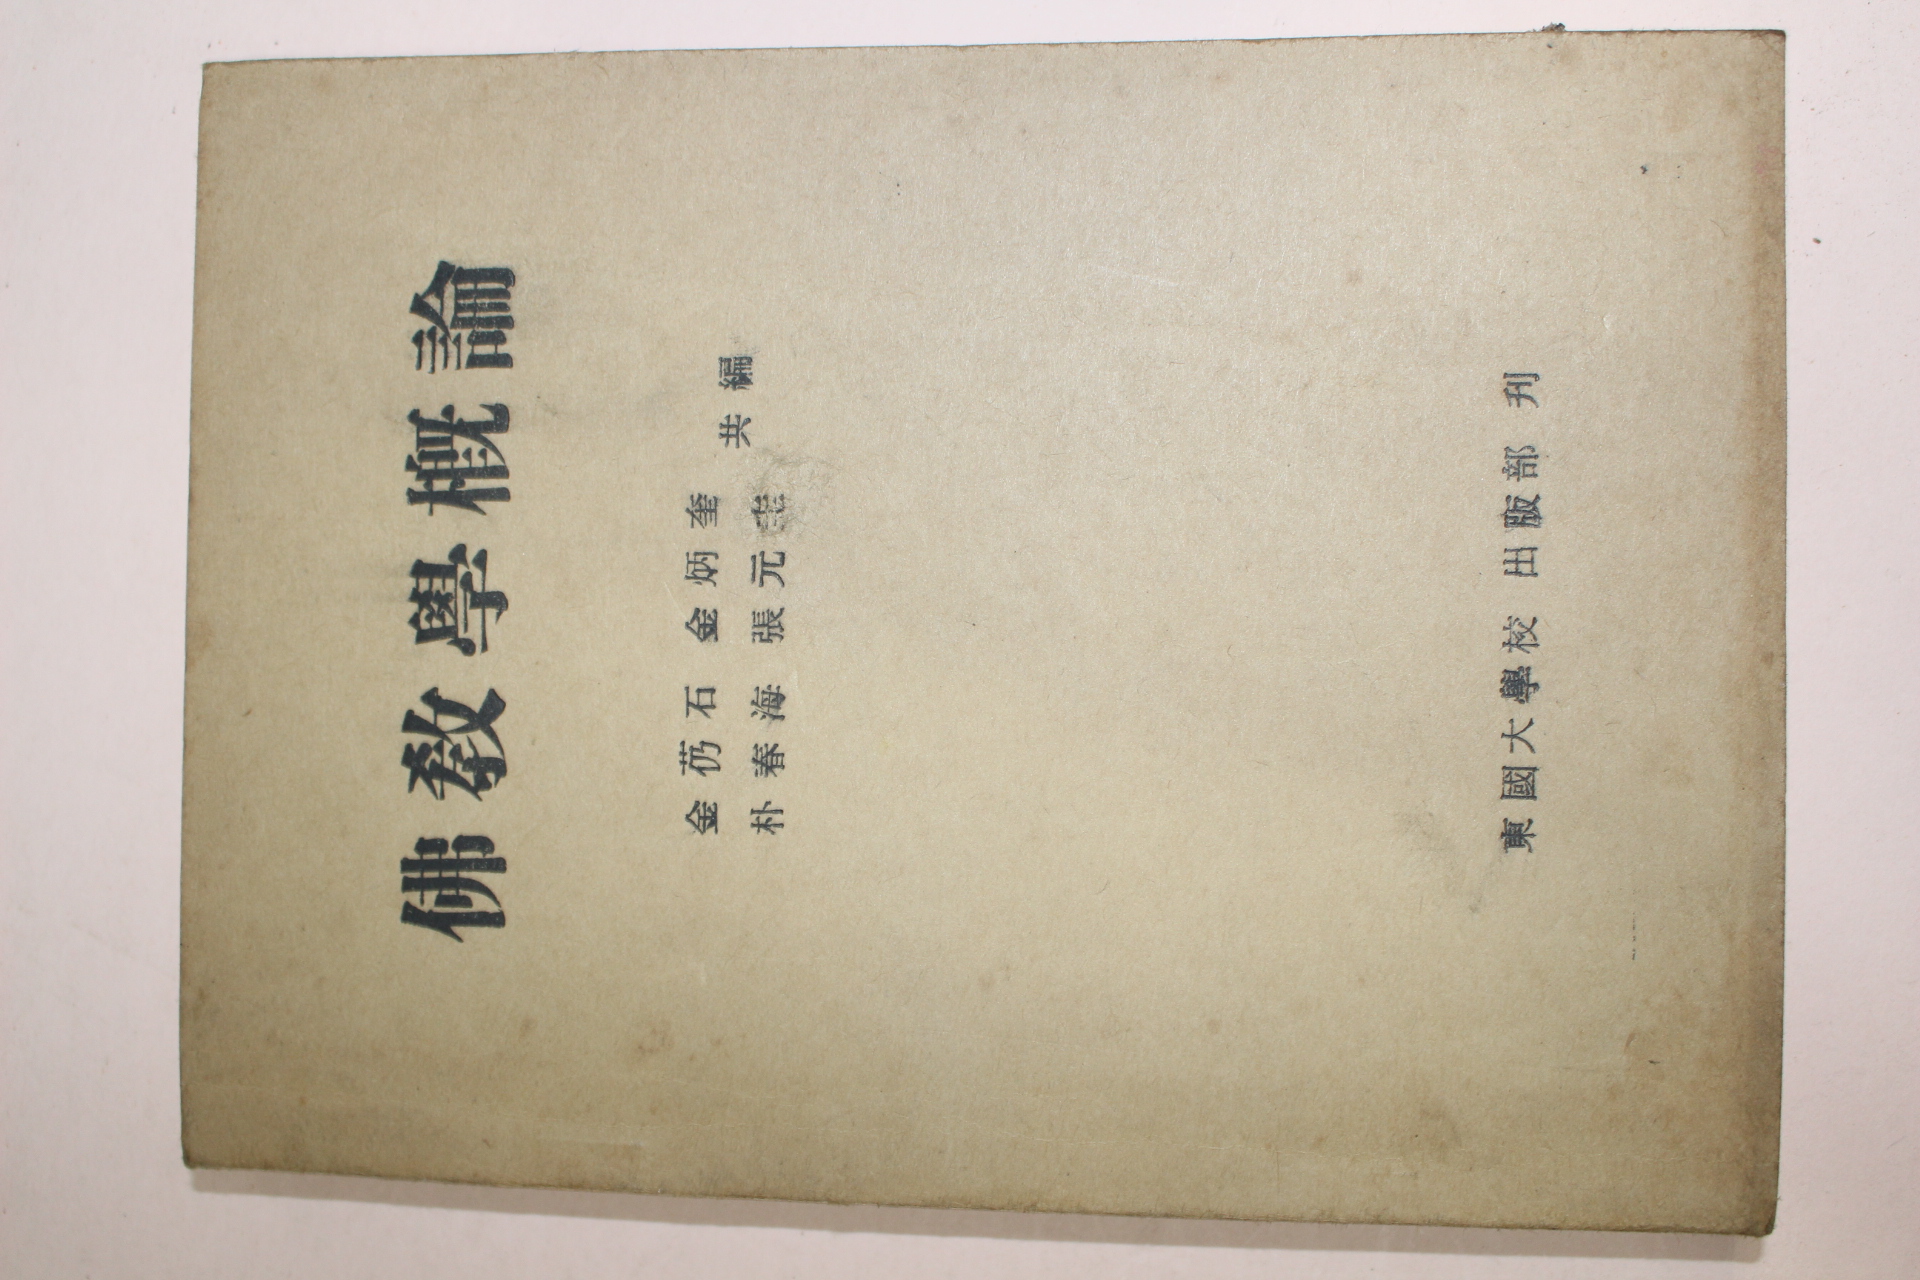 佛敎學槪論
金芿石 金炳奎
朴春海 張元圭
共編
東國大學校 出版部 刊